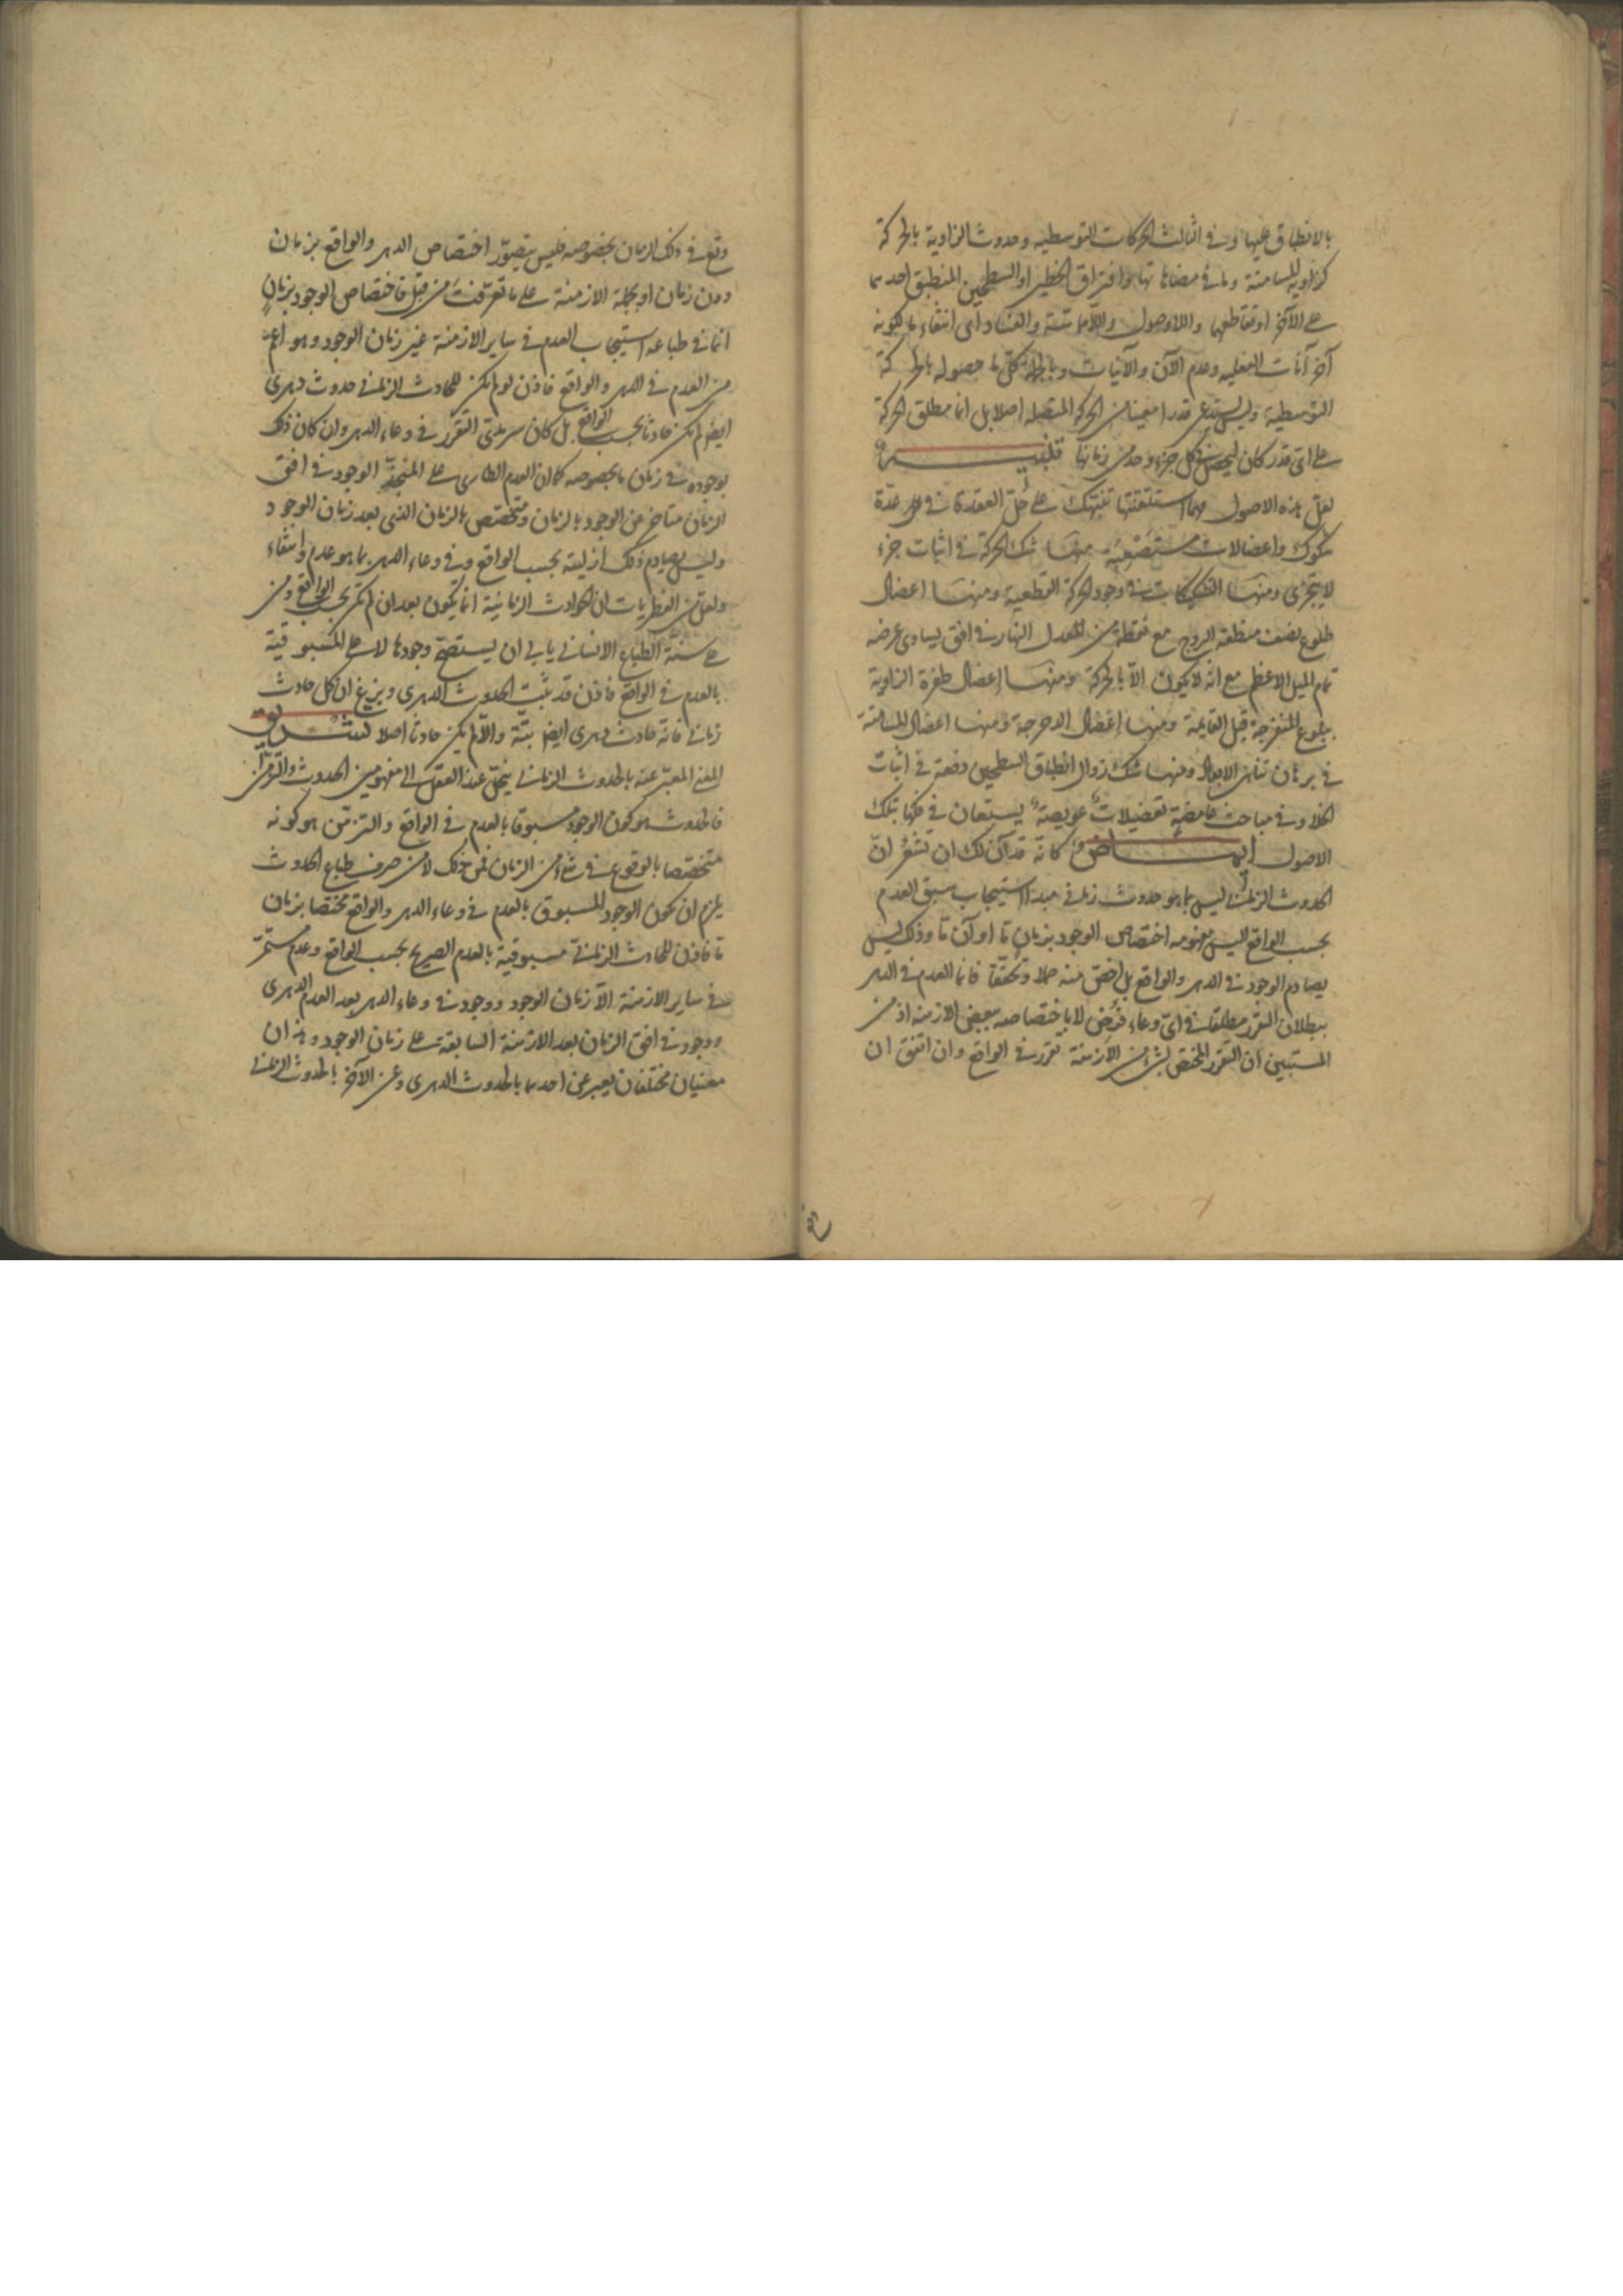 بالانطباق عليها وفى الثالث الحركات التوسطيه وحدوث الزاوية بالحركة
كزاوية المسامتة وما فى مضاهاتها وافتراق الخطين او السطحين المنطبق احدهما
على الآخر او تقاطعهما واللاوصول واللامماسّة والفساد اى انتفاء ما لكونه
آخر آنات الفعليه وعدم الآن والآنيات وبالجملة كل ما حصوله بالحركة
التوسطية وليس يستدعى قدرا معينا من الحركة المتصله اصلا بل انما مطلق الحركة
على اىّ قدر كان ليحصل فى كل جزء وحد من زمانها
لعل هذه الاصول مهما استتقنتها تنبّهك على حلّ العقدة فى عدّة
شكوك واعضالات مستصعبة منها شك الحركة فى اثبات جزء
لا يتجزى ومنها التشكيكات فى وجود الحركة القطعية ومنها اعضال
طلوع نصف منطقة البروج مع نقطة من المعدل النهار فى افق يساوى عرضه
تمام الميل الاعظم مع انه لا يكون الّا بالحركة ومنها اعضال طفرة الزاوية
ببلوغ المنفرجة قبل القايمة ومنها اعضال الدحرجة ومنها اعضال المسامتة
فى برهان تناهى الابعاد ومنها شك زوال انطباق السطحين دفعة فى اثبات
الخلاء وفى مباحث غامضة تعضيلات عويصة يستعان فى فكّها بتلك
الاصول ايماض وكانه قد آن لك ان تشعر انّ
الحدوث الزمانى ليس بما هو حدوث زمانى مبدا استيجاب سبق العدم
بحسب الواقع اليس مفهومه اختصاص الوجود بزمان مّا او آن مّا وذلك ليس
يصادم الوجود فى الدهر والواقع بل اخصّ منه حملا وتحقّقا فانما العدم فى الدهر
ببطلان التقرر مطلقا فى اىّ وعاء فرض لا باختصاصه ببعض الازمنه اذ من
المستبين ان التقرر المختص بشىء من الازمنة تقرر فى الواقع وان اتفق ان
وقع فى ذلك الزمان بخصوصه فليس يتصوّر اختصاص الدهر والواقع بزمان
دون زمان او بجملة الازمنة على ما تعرّفت من قبل فاختصاص الوجود بزمانٍ
انما فى طباعه استيجاب العدم فى ساير الازمنة غير زمان الوجود وهو اعمّ
من العدم فى الدهر والواقع فاذن لو لم يكن للحادث الزمانى حدوث دهرى
ايضا لم يكن حادثا بحسب الواقع بل كان سرمدىّ التقرر فى وعاء الدهر وان كان ذلك
بوجوده فى زمان ما بخصوصه كما ان العدم الطارى على المتجدّد الوجود فى افق
الزمان متاخر عن الوجود بالزمان ومتخصّص بالزمان الذى بعد زمان الوجود
وليس يصادم ذلك ازليته بحسب الواقع وفى وعاء الدهر بما هو عدم وانتفاء
ولعلّ من الفطريات ان الحوادث الزمانية انما يكون بعد ان لم تكن بحسب الواقع ومن
على سنّة الطباع الانسانى يابى ان يستصحّ وجودها لا على المسبوقية
بالعدم فى الواقع فاذن قد ثبت الحدوث الدهرى وبزغ ان كل حادث
زمانى فانه حادث دهرى ايضا بتّة والّا لم يكن حادثا اصلا تشريق
المعنى المعبّر عنه بالحدوث الزمانى ينحلّ عند العقل الى مفهومين الحدوث والتزمّن
فالحدوث هو كون الوجود مسبوقا بالعدم فى الواقع والتزمّن هو كونه
متخصّصا بالوقوع فى شىء من الزمان فمن ذلك لا من صرف طباع الحدوث
يلزم ان يكون الوجود المسبوق بالعدم فى وعاء الدهر والواقع مختصا بزمان
مّا فاذن للحادث الزمانى مسبوقية بالعدم الصريح بحسب الواقع وعدم مستمرّ
فى ساير الازمنة الّا زمان الوجود ووجود فى وعاء الدهر بعد العدم الدهرى
ووجود فى افق الزمان بعد الازمنة السابقة على زمان الوجود وهذان
معنيان مختلفان يعبر عن احدهما بالحدوث الدهرى وعن الآخر بالحدوث الزمانى